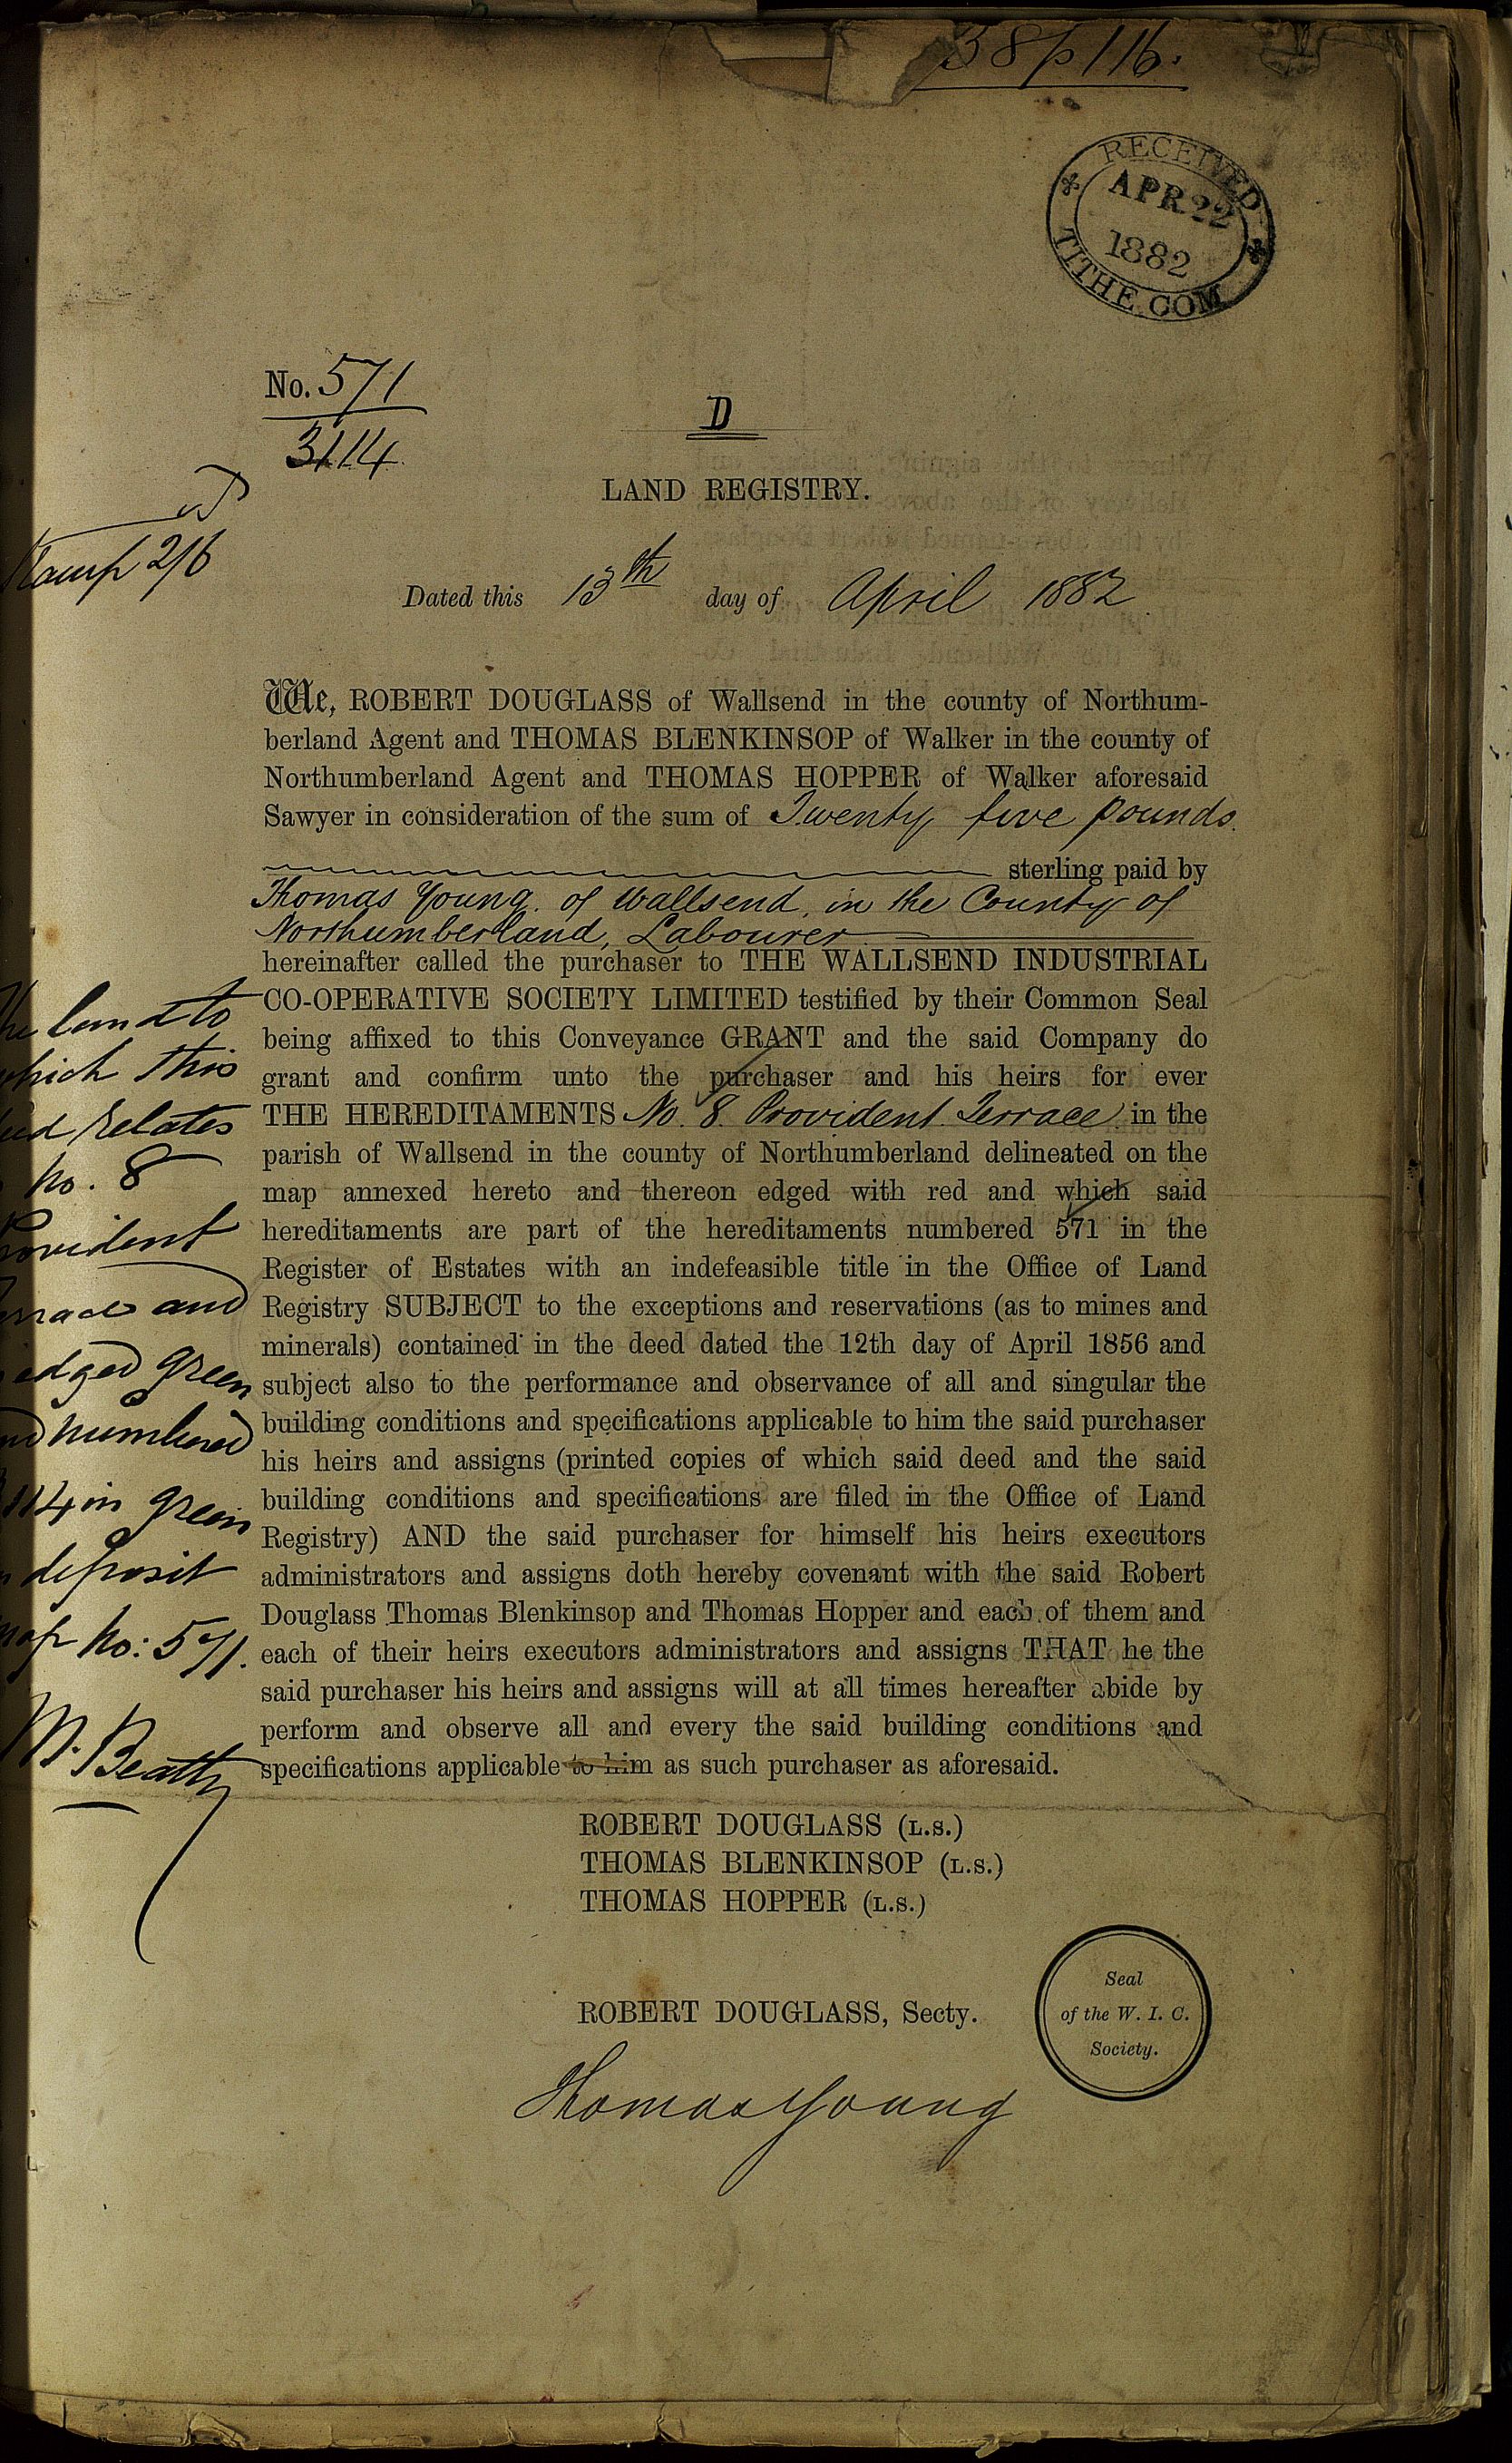 38 p 116.
RECEIVED
APR 22
1882
TITHE COM
No. 571
3114
D
LAND REGISTRY.
Stamp 2/6
Dated this 13th day of April 1882
We, ROBERT DOUGLASS of Wallsend in the county of Northum-
berland Agent and THOMAS BLENKINSOP of Walker in the county of
Northumberland Agent and THOMAS HOPPER of Walker aforesaid
Sawyer in consideration of the sum of Twenty five pounds.
sterling paid by
Thomas Young. of Wallsend, in the County of
Northumberland, Labourer
hereinafter called the purchaser to THE WALLSEND INDUSTRIAL
CO-OPERATIVE SOCIETY LIMITED testified by their Common Seal
being affixed to this Conveyance GRANT and the said Company do
grant and confirm unto the purchaser and his heirs for ever
THE HEREDITAMENTS No. 8. Provident Terrace in the
parish of Wallsend in the county of Northumberland delineated on the
map annexed hereto and thereon edged with red and which said
hereditaments are part of the hereditaments numbered 571 in the
Register of Estates with an indefeasible title in the Office of Land
Registry SUBJECT to the exceptions and reservations (as to mines and
minerals) contained in the deed dated the 12th day of April 1856 and
subject also to the performance and observance of all and singular the
building conditions and specifications applicable to him the said purchaser
his heirs and assigns (printed copies of which said deed and the said
building conditions and specifications are filed in the Office of Land
Registry) AND the said purchaser for himself his heirs executors
administrators and assigns doth hereby covenant with the said Robert
Douglass Thomas Blenkinsop and Thomas Hopper and each of them and
each of their heirs executors administrators and assigns THAT he the
said purchaser his heirs and assigns will at all times hereafter abide by
perform and observe all and every the said building conditions and
specifications applicable to him as such purchaser as aforesaid.
The land to
which this
deed relates
No. 8
Provident
Terrace and
edged green
and numbered
3114 in green
deposit
map No: 571.
M. Beatty
ROBERT DOUGLASS (L.S.)
THOMAS BLENKINSOP (L.S.)
THOMAS HOPPER (L.S.)
ROBERT DOUGLASS, Secty.
Seal
of the W. I. C.
Society.
Thomas Young